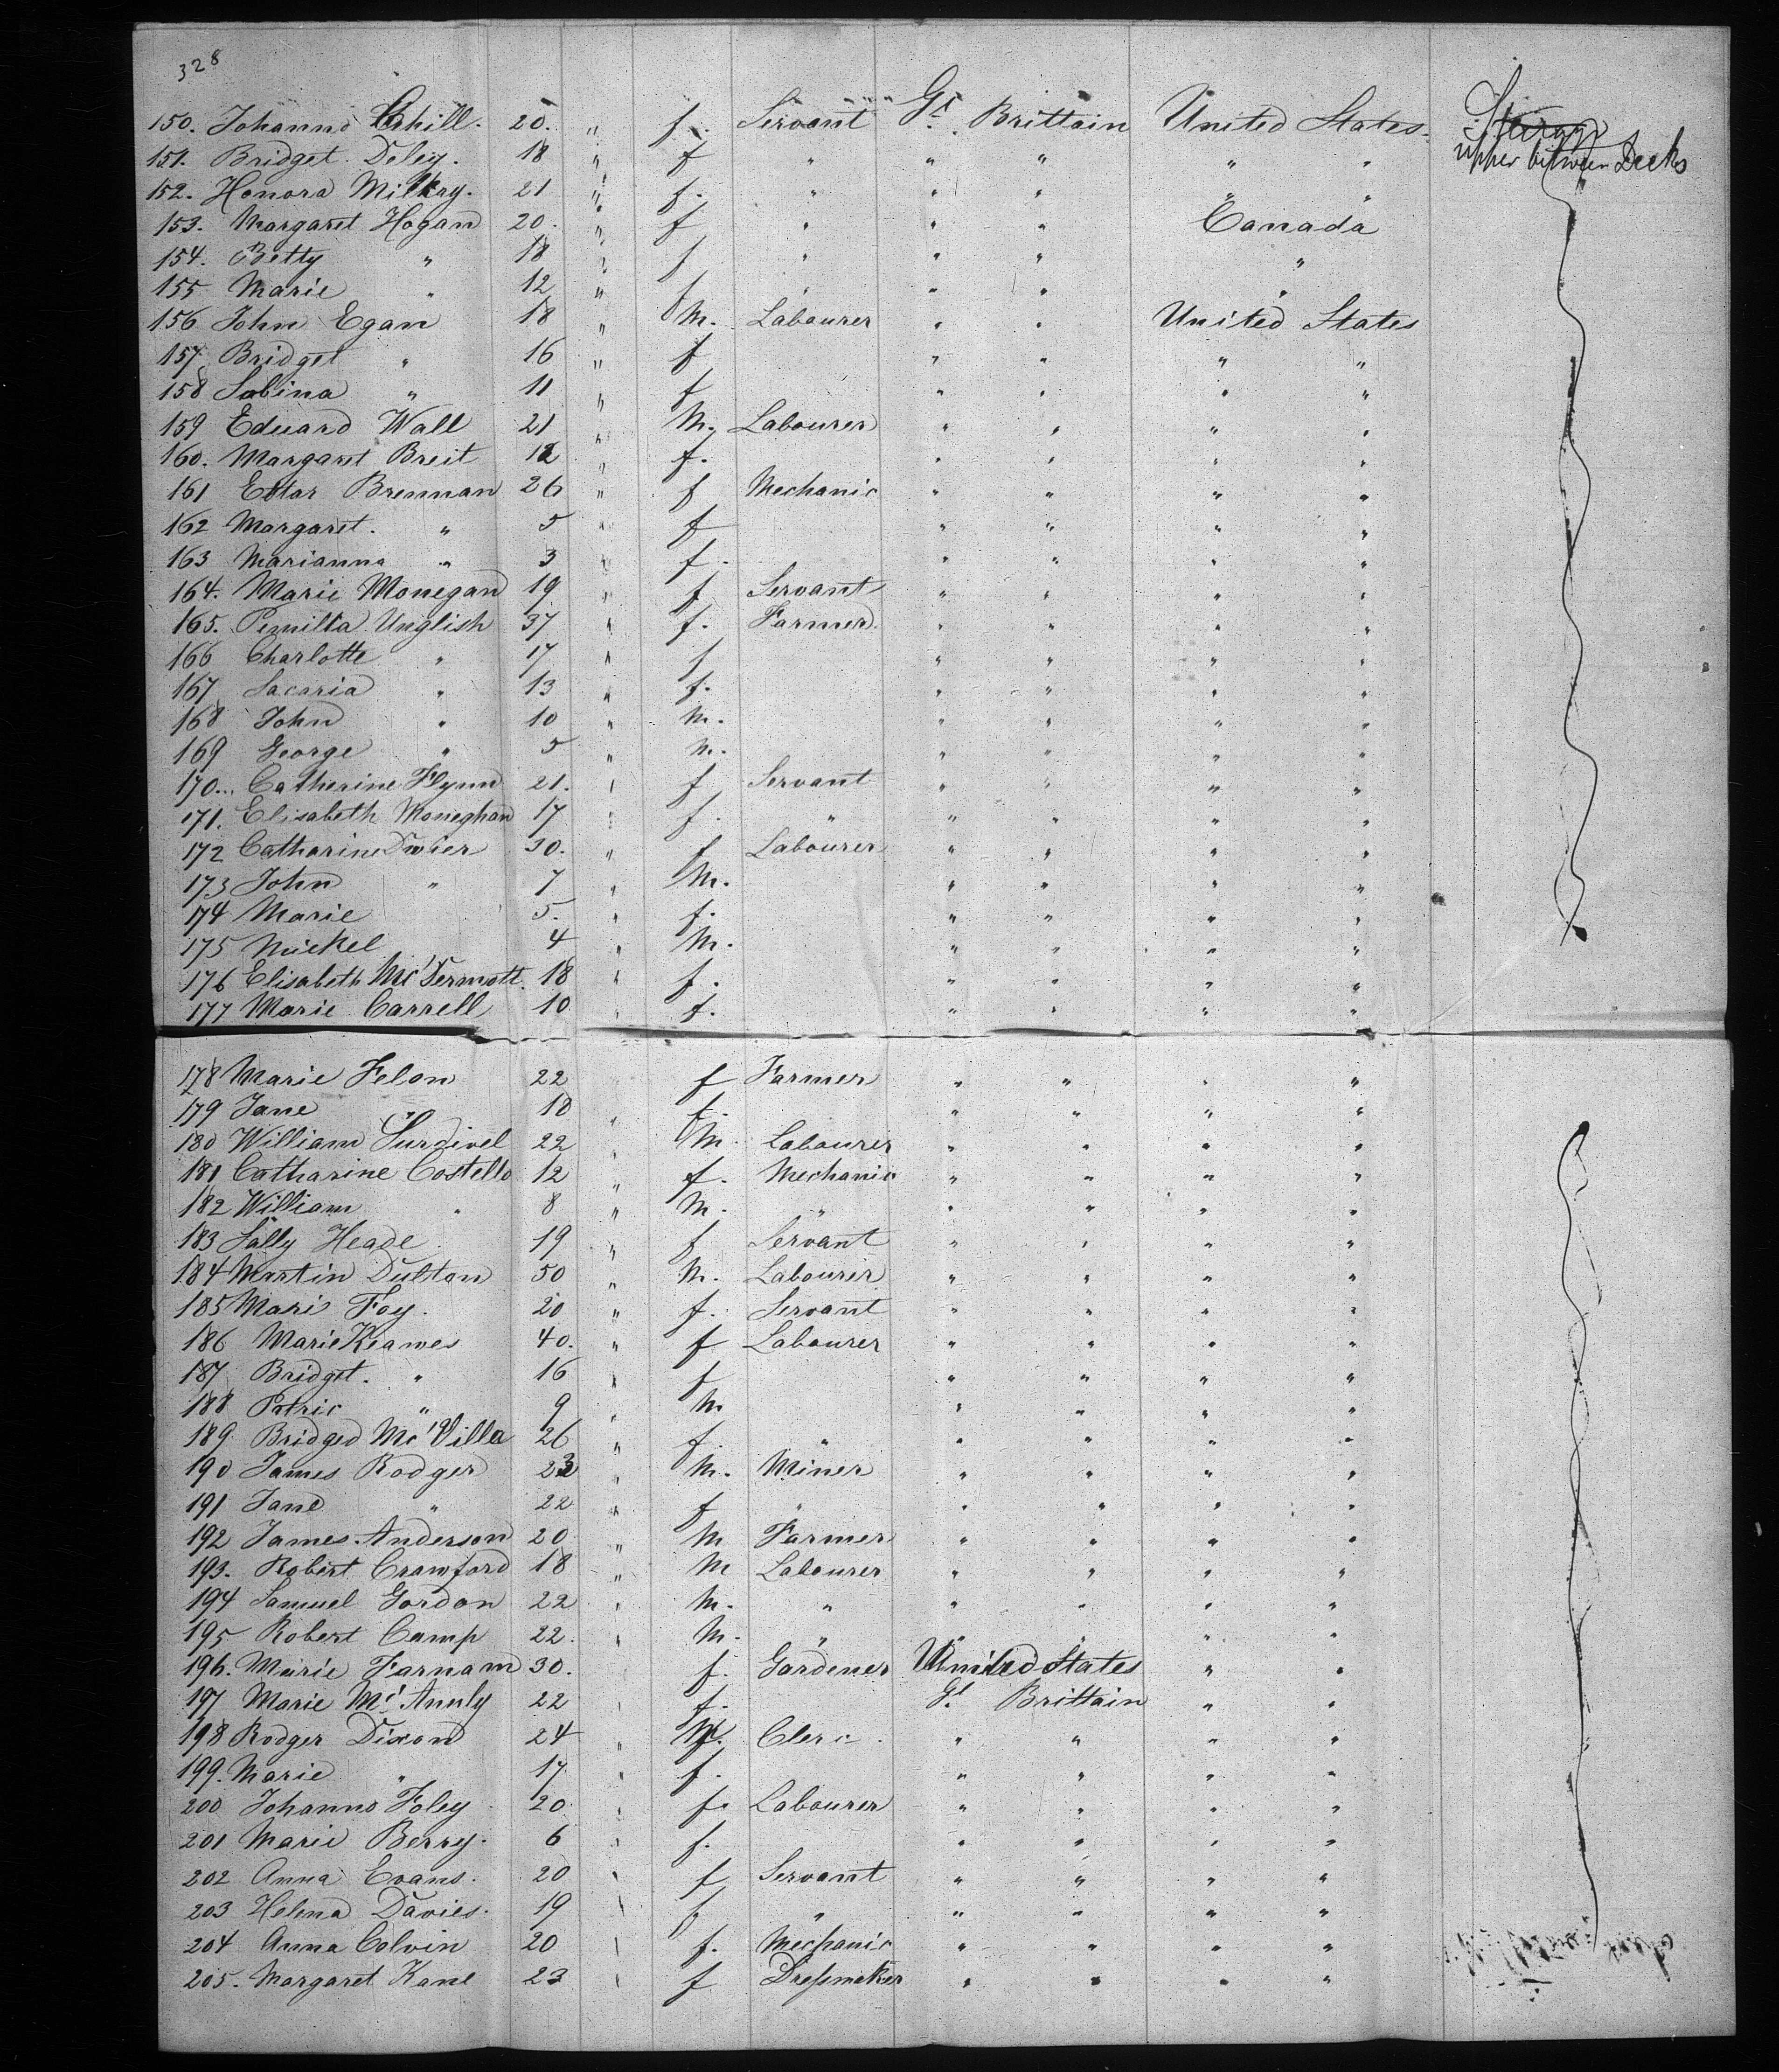 328
150. Johanna Cahill. 20. " f. Servant Gt. Brittain United States. Steerage
upper between Decks
151. Bridget Deley. 18 " f " " " " "
152. Honora Milkay. 21 " f. " " " " "
153. Margaret Hogan 20. " f " " " Canada
154. Betty " 18 " f " " " "
155 Marie " 12 " f " " " "
156 John Egan 18 " M. Labourer " " United States
157 Bridget " 16 " f " " " "
158 Sabina " 11 " f " " " "
159 Eduard Wall 21 " M. Labourer " " " "
160. Margaret Breit 12 " f. " " " "
161 Ester Brennan 26 " f Mechanic " " " "
162 Margaret. " 5 " f " " " "
163 Marianna " 3 " f. " " " "
164. Marie Monegan 19 " f Servant " " " "
165. Pemilta Unglish 37 " f. Farmer. " " " "
166 Charlotte " 17 " f " " " "
167 Sacaria " 13 " f. " " " "
168 John " 10 " M. " " " "
169 George " 5 " M. " " " "
170.. Catherine Flynn 21. " f Servant " " " "
171. Elisabeth Moneghan 17 " f. " " " " "
172 Catharine Dwier 30. " f Labourer " " " "
173 John " 7 " M. " " " "
174 Marie 5. " f. " " " "
175 Mickel 4 " M. " " " "
176 Elisabeth McDermott. 18 " f. " " " "
177 Marie Carrell 10 " f. " " " "
178 Marie Felon 22 f Farmer " " " "
179 Jane " 18 " f. " " " "
180 William Surdivel 22 " M. Labourer " " " "
181 Catharine Costello 12 " f. Mechanic " " " "
182 William " 8 " M. " " " " "
183 Sally Heade. 19 " f Servant " " " "
184 Martin Dulton 50 " M. Labourer " " " "
185 Mari Foy. 20 " f. Servant " " " "
186 Marie Keawes 40. " f Labourer " " " "
187 Bridget. " 16 " f " " " "
188 Patric " 9 " M " " " "
189 Bridged Mc'Villa 26 " f. " " " " "
190 James Rodger 23 " M. Miner " " " "
191 Jane " 22 " f " " " " "
192 James Anderson 20 " M Farmer " " " "
193. Robert Crawford 18 " M Labourer " " " "
194 Samuel Gordon 22 " M. " " " " "
195 Robert Camp 22. " M. " " " " "
196. Marie Farnam 30. f. Gardener United States " "
197 Marie Mc' Anuly 22 " f. Gt. Brittain " "
198 Rodger Dixon 24 " M. Clerc. " " " "
199. Marie " 17 " f. " " " "
200 Johanna Foley 20 " f. Labourer " " " "
201 Marie Berry. 6 " f. " " " "
202 Anna Evans. 20 " f Servant " " " "
203 Helena Davies. 19 " f " " " " "
204 Anna Colvin 20 " f. Mechanic " " " "
205. Margaret Kane 23 " f Dressmaker " " " "